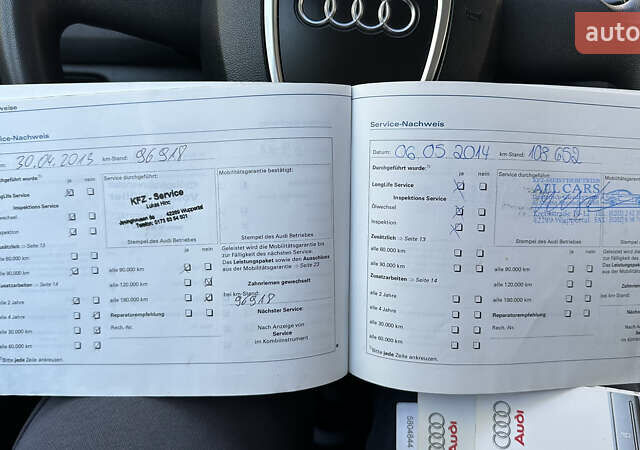 auto
weise
ice-Nachweis
30.04.2013 km-Stand: 96918
chgeführt wurde:
Service durchgeführt:
Mobilitätsgarantie bestätigt:
ja nein
LongLife Service
Inspektions Service
Ölwechsel
Inspektion
KFZ - Service
Lukas Hinc
42289 Wuppertal
Stempel des Audi Betriebs
Zusätzlich => Seite 13
alle 60.000 km
alle 90.000 km
Zusatzarbeiten => Seite 14
alle 2 Jahre
alle 4 Jahre
alle 30.000 km
alle 60.000 km
ja nein
alle 90.000 km
alle 120.000 km
alle 180.000 km
Reparaturempfehlung
Rech.-Nr.
Geleistet wird die Mobilitätsgarantie bis
zur Fälligkeit des nächsten Service.
Das Leistungspaket sowie den Ausschluss
aus der Mobilitätsgarantie => Seite 23
Zahnriemen gewechselt
bei km-Stand:
96918
Nächster Service:
Nach Anzeige von
Service
im Kombiinstrument
Bitte jede Zeile ankreuzen.
Service-Nachweis
Datum: 06.05.2014 km-Stand: 109 652
Durchgeführt wurde:
Service durchgeführt:
Mobilitätsgarantie
ja nein
LongLife Service
Inspektions Service
Ölwechsel
Inspektion
ALL CARS
42119 Wuppertal
Stempel des Audi Betriebs
Zusätzlich => Seite 13
alle 60.000 km
alle 90.000 km
Zusatzarbeiten => Seite 14
alle 2 Jahre
alle 4 Jahre
alle 30.000 km
alle 60.000 km
ja nein
alle 90.000 km
alle 120.000 km
alle 180.000 km
Reparaturempfehlung
Rech.-Nr.
Geleistet wird
zur Fälligkeit
Das Leistungs
aus der Mobil
Zahn
bei km-Sta
Nä
Na
im Ko
Bitte jede Zeile ankreuzen.
5804844
Audi
Audi